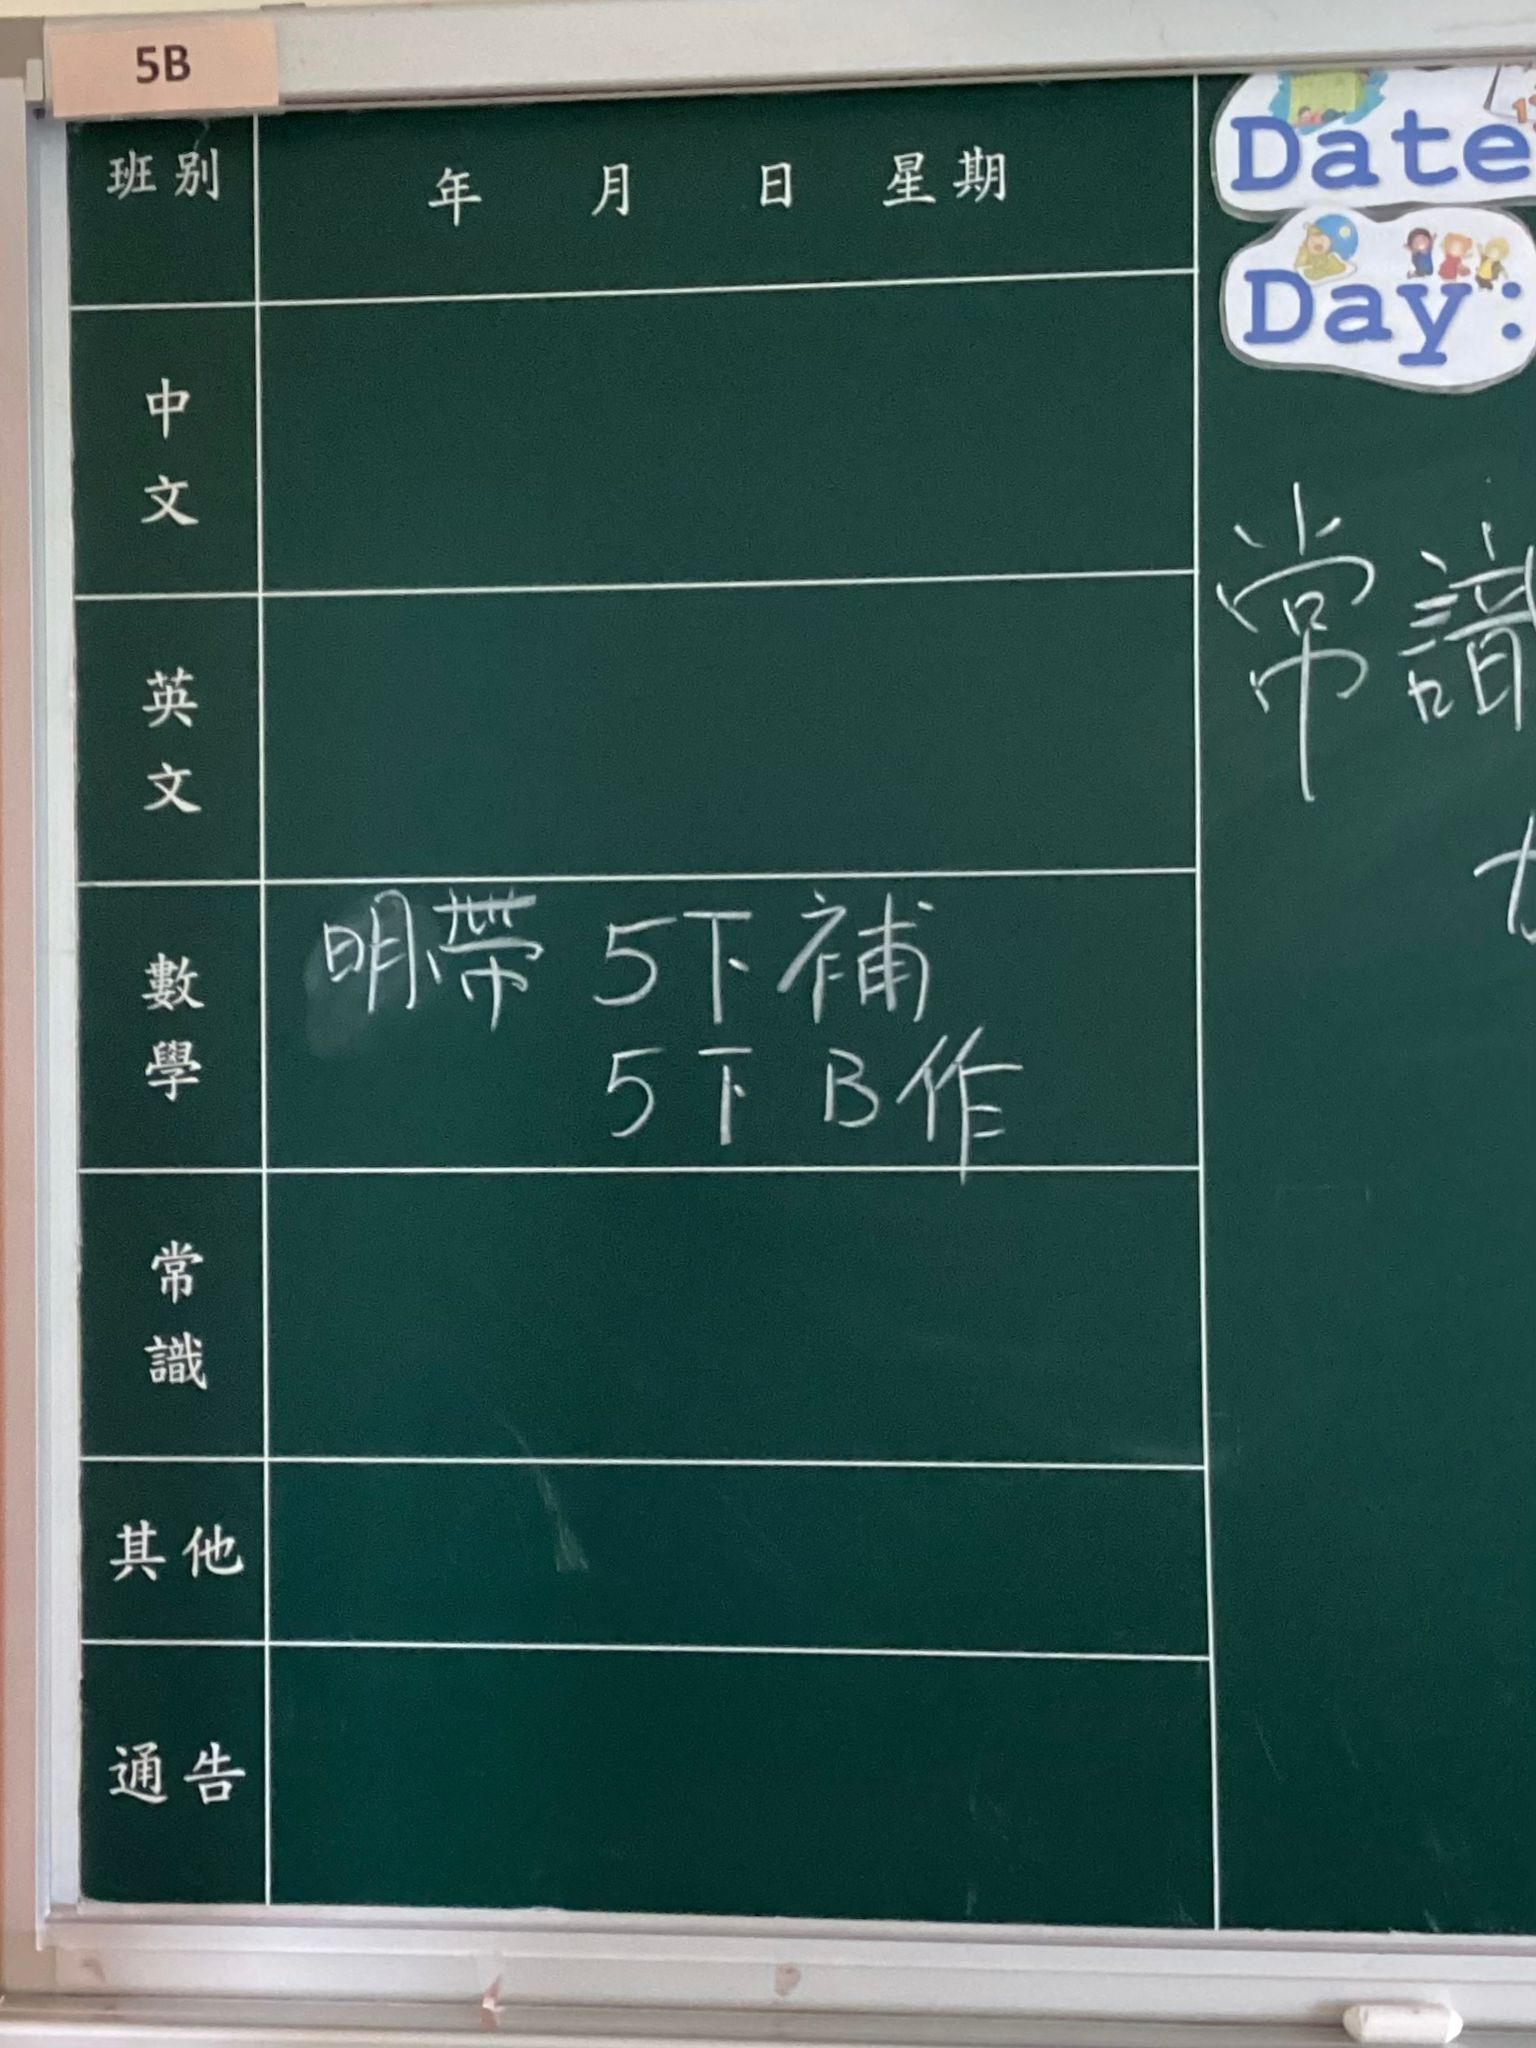 5B
班別
年 月 日 星期
Date
Day:
中文
英文
數學
明帶 5下補
5下 B作
常識
其他
通告
常